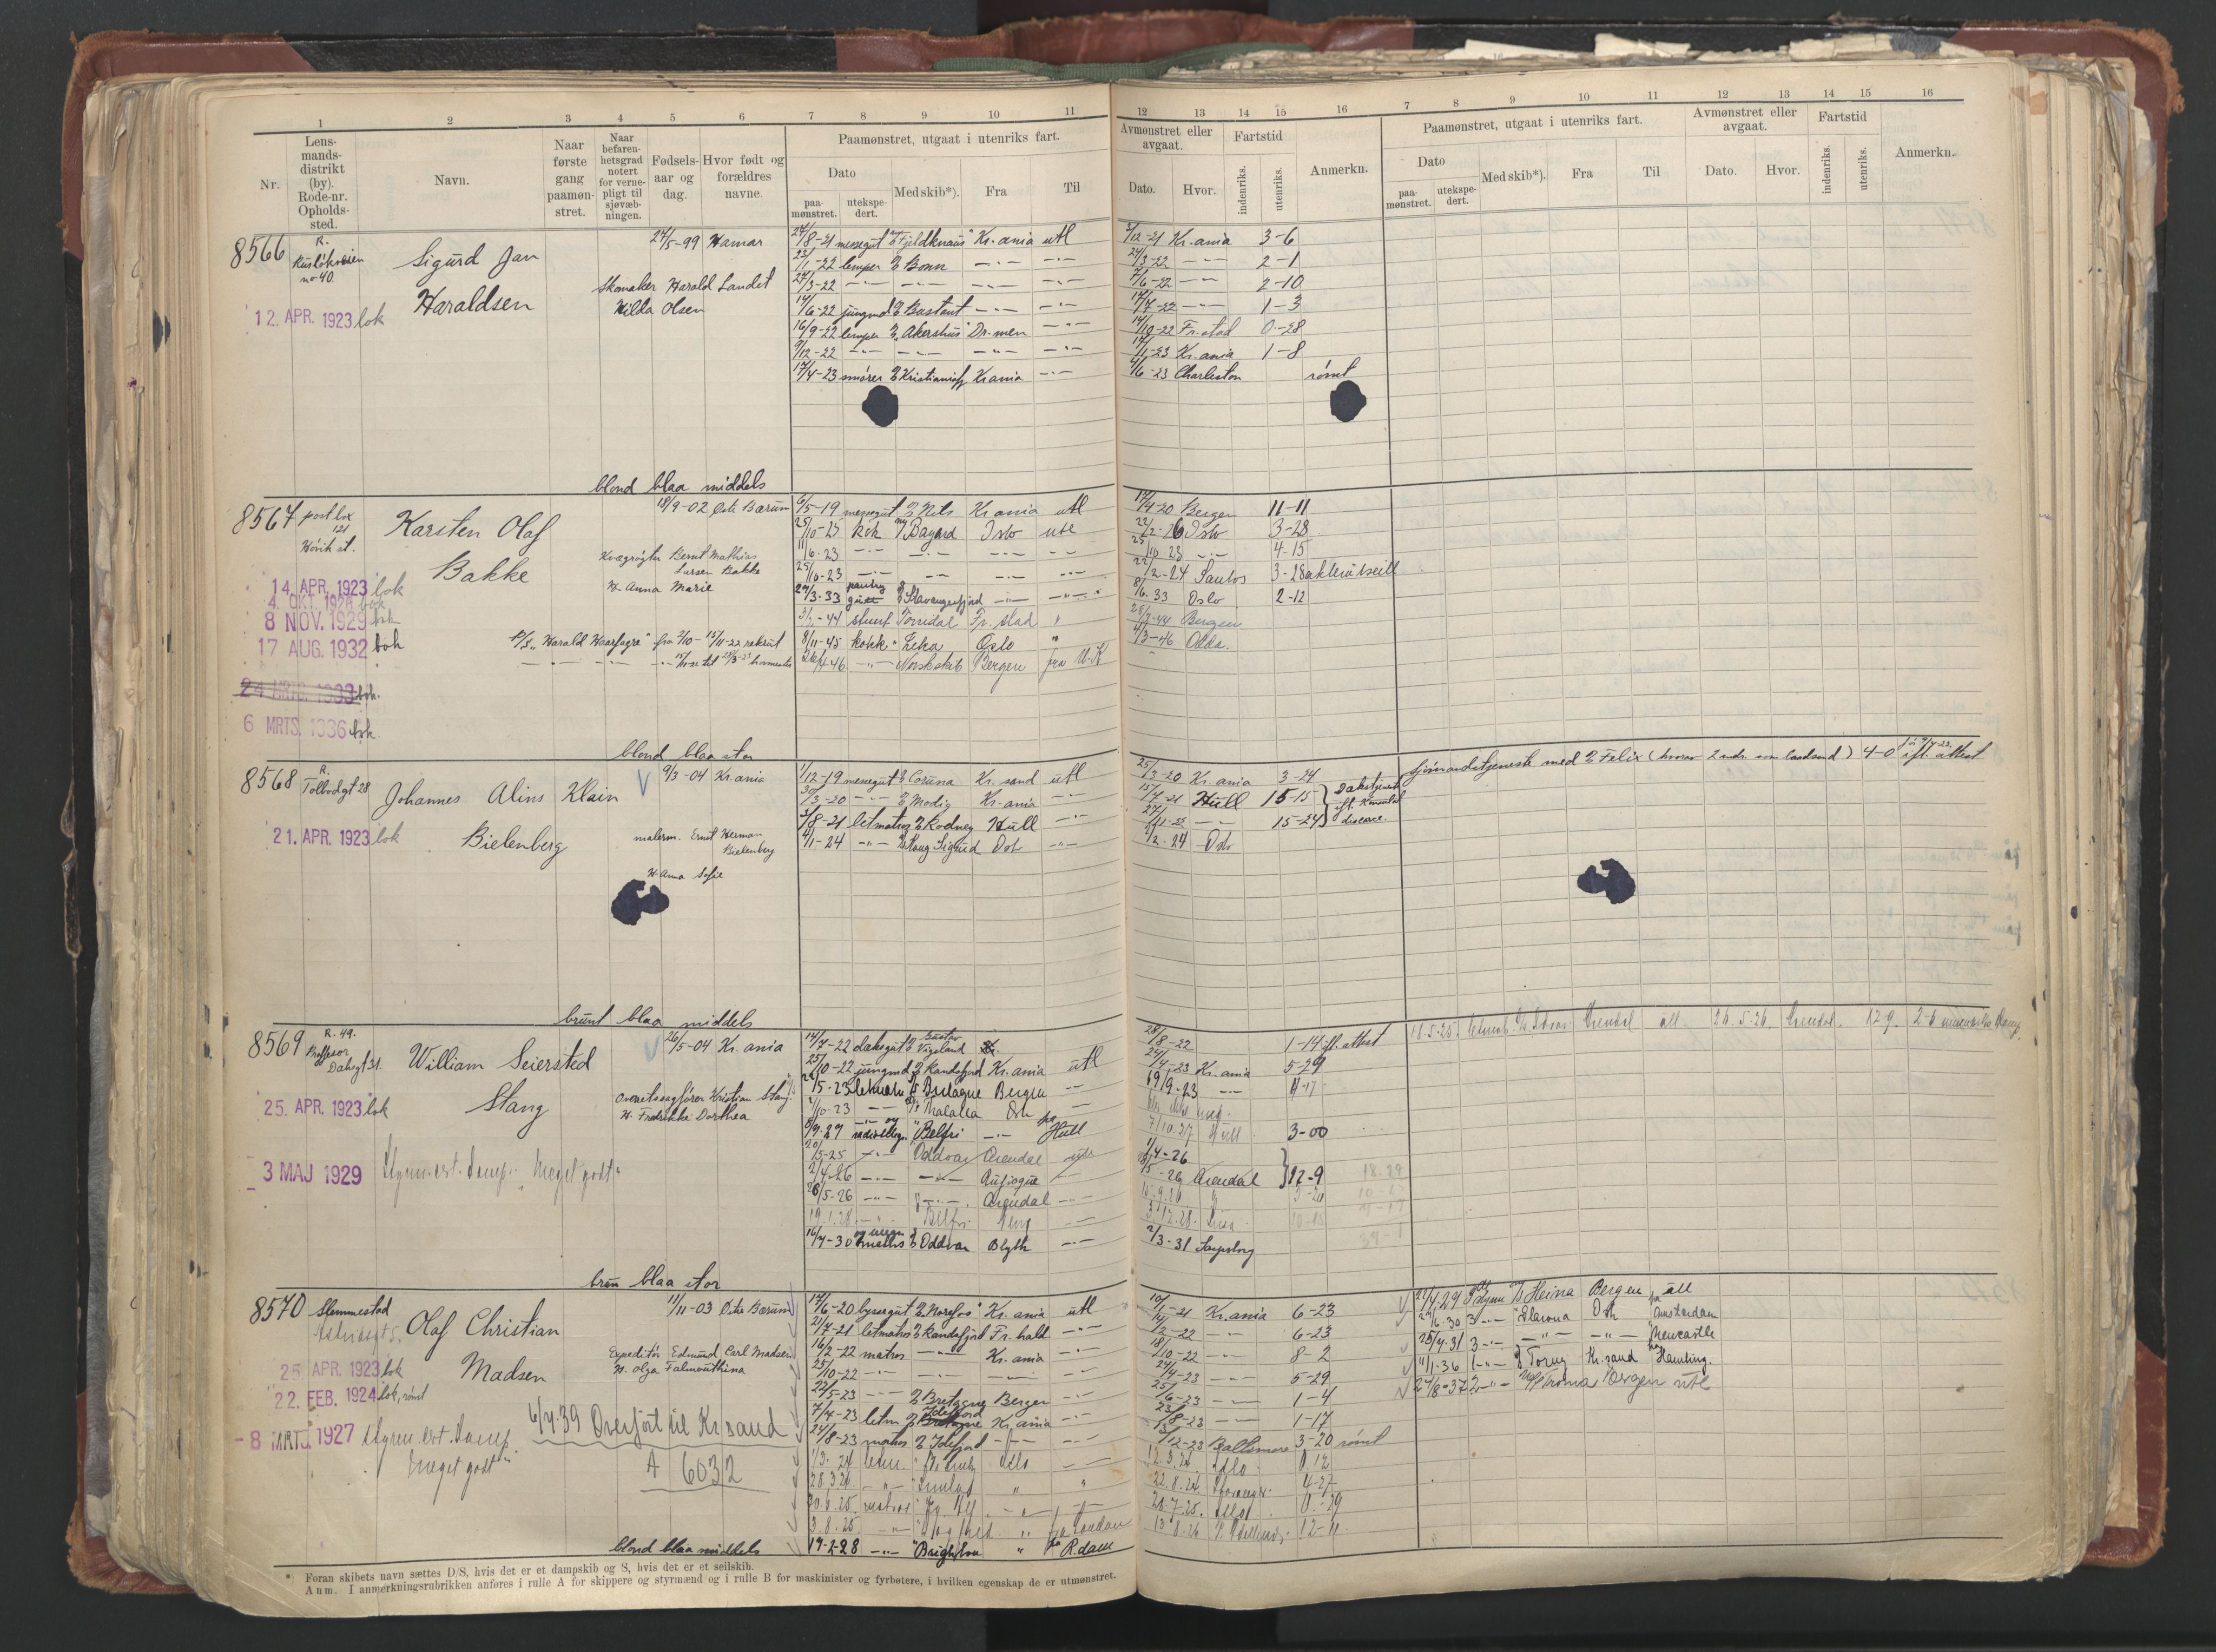 1 2 3 4 5 6 7 8 9 10 11
12 13 14 15 16 7 8 9 10 11 12 13 14 15 16
Nr.
Lens-
mands-
distrikt
(by).
Rode-nr.
Opholds-
sted.
Navn.
Naar
første
gang
paamøn-
stret.
Naar
befaren-
hetsgrad
notert
for verne-
pligt til
sjøvæb-
ningen.
Fødsels-
aar og
dag.
Hvor født og
forældres
navne.
Paamønstret, utgaat i utenriks fart.
Dato
paa-
mønstret.
utekspe-
dert.
Med skib*).
Fra
Til
Avmønstret eller
avgaat.
Dato.
Hvor.
Fartstid
indenriks.
utenriks.
Anmerkn.
Paamønstret, utgaat i utenriks fart.
Dato
paa-
mønstret.
utekspe-
dert.
Med skib*).
Fra
Til
Avmønstret eller
avgaat.
Dato.
Hvor.
Fartstid
indenriks.
utenriks.
Anmerkn.
8566
R.
no 40.
Sigurd Jan
Haraldsen
12. APR. 1923 lok
24/5-99 Hamar
Skomaker Harald Landet
Hilda Olsen
24/8-21 messegut "Fjeldknaus" Kr.ania utl
/1-22 lemper Bonn
27/3-22
14/6-22 jungmd Bastant
16/9-22 lemper "Akershus" Dr.men
9/12-22
17/4-23 smører Kristianiafj. Kr.ania
/12-21 Kr.ania 3-6
24/3-22 2-1
7/6-22 2-10
17/7-22 1-3
14/10-22 Fr.stad 0-28
17/1-23 Kr.ania 1-8
4/6-23 Charleston rømt
blond blaa middels
8567 postbox
121
Høvik st.
Karsten Olaf
Bakke
14 APR. 1923 lok
4. OKT. 1928 bok
8 NOV. 1929 bok
17 AUG. 1932 bok
24 MRTS. 1933 bok.
6 MRTS. 1936 bok.
18/9-02 Østre Bærum
Kvægrøgter Bernt Mathias
Larsen Bakke
H. Anna Marie
"Harald Haarfagre" fra 2/10-15/11-22 rekrut
6/5-19 messegut Nils Kr.ania utl
25/10-25 kok Bayard Oslo utl
11/6-23
25/10-23
29/3-33 pantry
gutt Stavangerfjord
-44 stuert Torridal Fr.stad
8/11-45 kokk Leka Oslo
26/4 46 Norskekib Bergen fra U.K
17/4 20 Bergen 11-11
22/2-26 Oslo 3-28
25/10 23 4-15
22/2-24 Santos 3-28 akterutseilt
8/6.33 Oslo 2-12
28/2-44 Bergen
4/3-46 Odda.
blond blaa stor
8568 R.
Tolbodgt 28
Johannes Alins Klain
Bielenberg
21. APR. 1923 lok
9/3-04 Kr.ania
malerm. Ernst Herman
Bielenberg
H. Anna Sofie
1/12-19 messegut Coruna Kr.sand utl
30/3-20 Modig Kr.ania
/8-21 letmatros Rodney Hull
4/1-24 Kong Sigurd Oslo
25/3-20 Kr.ania 3-24
15/7-21 Hull 15-15
27/11-22 15-24
Dækstjeneste
ift. Konsulat
/2.24 Oslo
hjørnvardstjeneste med Felix (hvorav 2 mdr. som landmd) 4-0 ift. attest
brunt blaa middels
8569 R. 49.
Professor
Dahsgt 31.
William Seiersted
Stang
25. APR. 1923 lok
3 MAJ 1929 Styrm. ext. damp. "Meget godt"
26/5-04 Kr.ania
Overretssagfører Kristian Stang.
H. Fredrikke Dorthea
14/7-22 dæksgut Gustav
Vigeland
25/10-22 jungmd Randsfjord Kr.ania utl
/5-23 letmatr. Bretagne Bergen
/10-23 Thalatta Oslo
8/7.27 radiotelegr. "Belfri fra Hull
20/5-25 Oddvar Arendal utl
2/4-26
26/5-26 Arendal
19.1.28. Belfri
16/7-30 matros Oddvar Blyth
28/8-22 1-14 ift. attest
24/4-23 Kr.ania 5-29
19/9-23 4-17
7/10.27 Hull 3-00
1/4-26
/5-26 Arendal 12-9
2/3-31 Sarpsborg
18.5.25. letmatr. Arendal utl. 26.5.26. Arendal. 12 9.
brun blaa stor
8570 Slemmestad
Olaf Christian
Madsen
25. APR. 1923 lok
22. FEB. 1924 lok, rømt
8 MRTS 1927 Styrm. ext. damp.
"meget godt"
6/4.39 Overført til Kr.sand
A 6032
11/11-03 Østre Bærum
Expeditør Edmund Carl Madsen
H. Olga Falmouthina
14/6-20 byssegut "Norefos" Kr.ania utl
21/7-21 letmatros Randsfjord Fr.hald
16/2-22 matros Kr.ania
25/10-22
22/5-23 Bretagne Bergen
7/4-23 letm Idefjord
Bretagne Kr.ania
24/8-23 matros Idefjord
1/3.24 letm. Oslo
28.3.24
20.6.25. matros
3.8.25. fra London
19-2-28 "Brighton fra R.dam
10/5-21 Kr.ania 6-23
14/2-22 6-23
18/10-22 8-2
24/4-23 5-29
25/6-23 1-4
23/8-23 1-17
13/12-23 Baltimore 3-20 rømt
12.3.24. Oslo. 0.12
22.8.24. Stavanger. 4-27
20.7.25. Oslo. 0.-29
13.8.26 12-11.
27/4.29 Heina Bergen utl
27/6.30 3 Slavona Oslo fra Amsterdam
25/4.31 3 Newcastle
11/1.36 1 Torny Kr.sand fra Hamburg.
27/8-37 2 Troma Bergen utl
blond blaa middels
* Foran skibets navn sættes D/S, hvis det er et dampskib og S, hvis det er et seilskib.
Anm. I anmerkningsrubrikken anføres i rulle A for skippere og styrmænd og i rulle B for maskinister og fyrbøtere, i hvilken egenskap de er utmønstret.